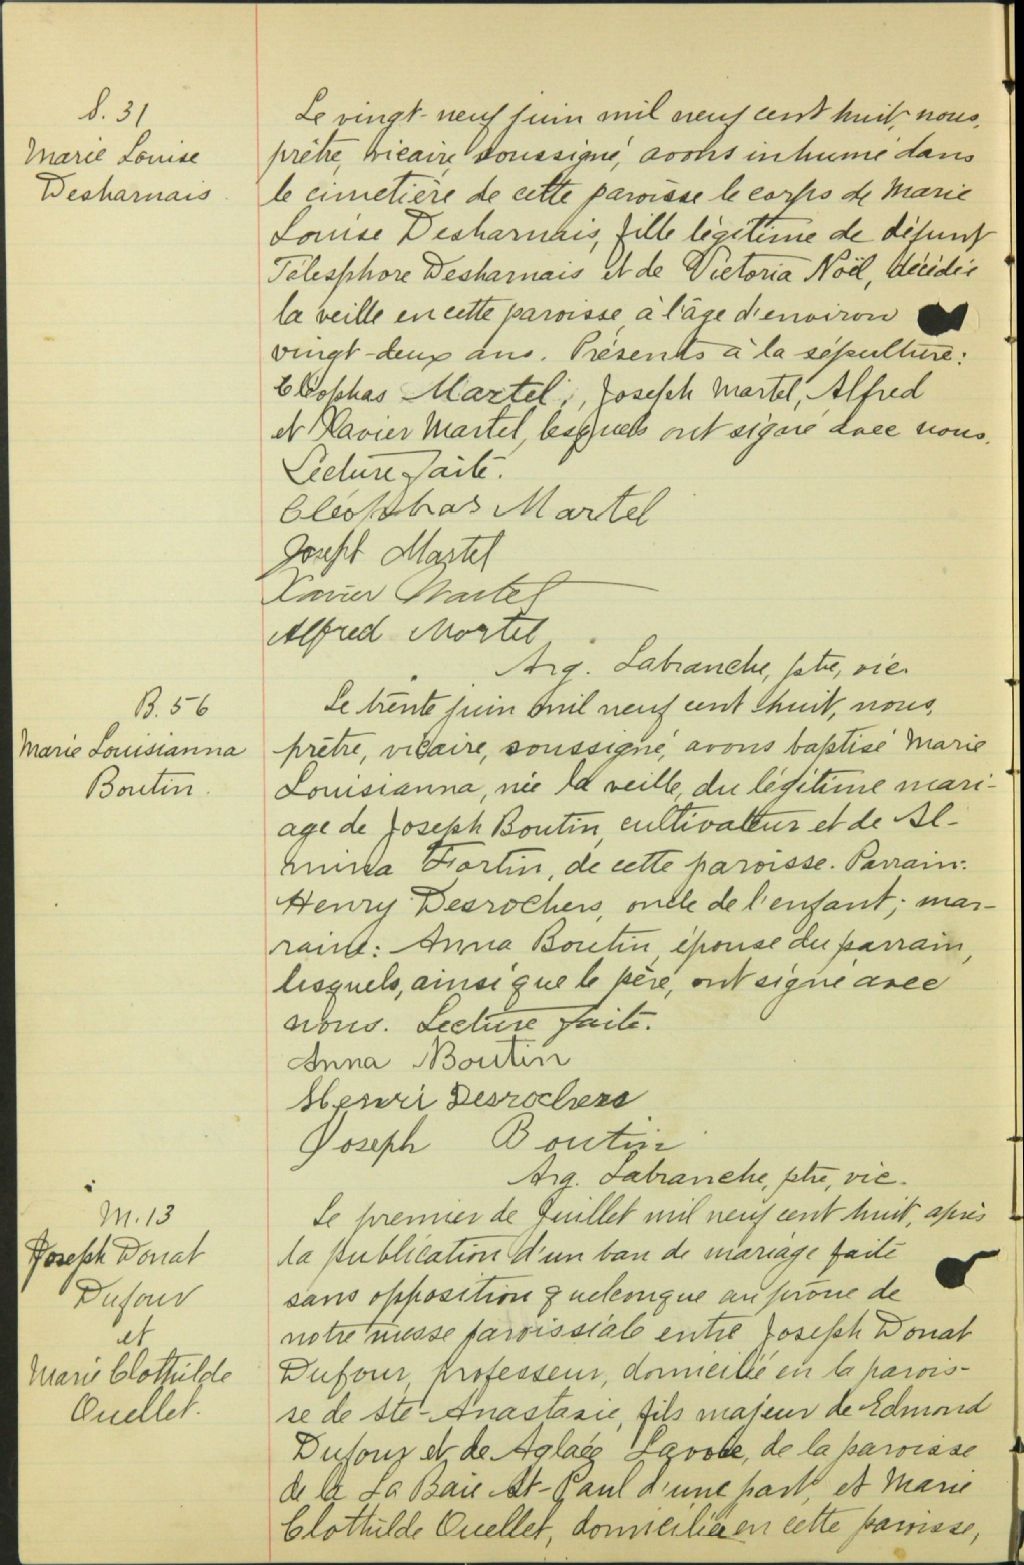 S. 31
Marie Louise
Desharnais
Le vingt-neuf juin mil neuf cent huit, nous,
prêtre, vicaire, soussigné, avons inhumé dans
le cimetière de cette paroisse le corps de Marie
Louise Desharnais, fille légitime de défunt
Télesphore Desharnais et de Victoria Noël, décédée
la veille en cette paroisse, à l'âge d'environ
vingt-deux ans. Présents à la sépulture:
Cléophas Martel, Joseph Martel, Alfred
et Xavier Martel, lesquels ont signé avec nous.
Lecture faite.
Cléophas Martel
Joseph Martel
Xavier Martel
Alfred Martel
Arg. Labranche, ptre, vic.
B. 56
Marie Louisianna
Boutin.
Le trente juin mil neuf cent huit, nous,
prêtre, vicaire, soussigné, avons baptisé Marie
Louisianna, née la veille, du légitime mari-
age de Joseph Boutin, cultivateur et de Al-
mina Fortin, de cette paroisse. Parrain:
Henry Desrochers, oncle de l'enfant; mar-
raine: Anna Boutin, épouse du parrain,
lesquels, ainsi que le père, ont signé avec
nous. Lecture faite.
Anna Boutin
Henri Desrochers
Joseph Boutin
Arg. Labranche, ptre, vic.
M. 13
Joseph Donat
Dufour
et
Marie Clothilde
Ouellet.
Le premier de Juillet mil neuf cent huit, après
la publication d'un ban de mariage faite
sans opposition quelconque au prône de
notre messe paroissiale entre Joseph Donat
Dufour, professeur, domicilié en la parois-
se de Ste-Anastasie, fils majeur de Edmond
Dufour et de Aglaée Lavoie, de la paroisse
de la La Baie St-Paul d'une part, et Marie
Clothilde Ouellet, domiciliée en cette paroisse,